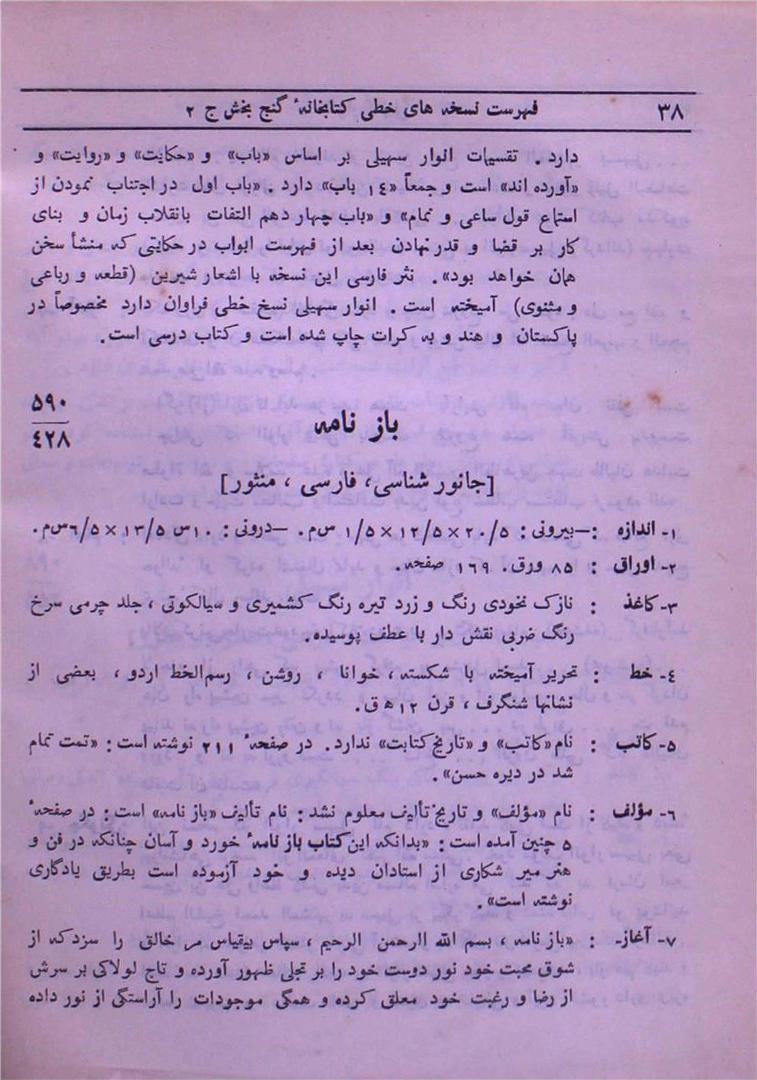 ۳۸ فهرست نسخه های خطی کتابخانهٔ گنج بخش ج ۲
دارد. تقسیات انوار سهیلی بر اساس «باب» و «حکایت» و «روایت» و
«آورده اند» است و جمعاً «۱٤ باب» دارد. «باب اول در اجتناب نمودن از
استماع قول ساعی و نمام» و «باب چهار دهم التفات بانقلاب زمان و بنای
کار بر قضا و قدر نهادن بعد از فهرست ابواب در حکایتی که منشأ سخن
هان خواهد بود». نثر فارسی این نسخه با اشعار شیرین (قطعه و رباعی
و مثنوی) آمیخته است. انوار سهیلی نسخ خطی فراوان دارد مخصوصاً در
پاکستان و هند و به کرات چاپ شده است و کتاب درسی است.
۵۹۰
٤۲۸
باز نامه
[جانور شناسی، فارسی، منثور]
۱- اندازه :—بیرونی: ۲۰/۵ × ۱۲/۵ × ۱/۵ س م. —درونی: ۱۰س ۱۳/۵ × ۶/۵س م.
۲- اوراق : ۸۵ ورق. ۱۶۹ صفحه.
۳- کاغذ : نازک نخودی رنگ و زرد تیره رنگ کشمیری و سیالکوتی، جلد چرمی سرخ
رنگ ضربی نقش دار با عطف پوسیده.
٤- خط : تحریر آمیخته با شکسته، خوانا، روشن، رسم‌الخط اردو، بعضی از
نشانها شنگرف، قرن ۱۲ ه ق.
۵- کاتب : نام «کاتب» و «تاریخ کتابت» ندارد. در صفحهٔ ۲۱۱ نوشته است: «تمت تمام
شد در دیره حسن».
۶- مؤلف : نام «مؤلف» و تاریخ تألیف معلوم نشد: نام تألیف «باز نامه» است: در صفحهٔ
۵ چنین آمده است: «بدانکه این کتاب باز نامهٔ خورد و آسان چنانکه در فن و
هنر میر شکاری از استادان دیده و خود آزموده است بطریق یادگاری
نوشته است».
۷- آغاز- : «باز نامه، بسم الله الرحمن الرحیم، سپاس بیقیاس مر خالق را سزد که از
شوق محبت خود نور دوست خود را بر تجلی ظهور آورده و تاج لولاکی بر سرش
از رضا و رغبت خود معلق کرده و همگی موجودات را آراستگی از نور داده